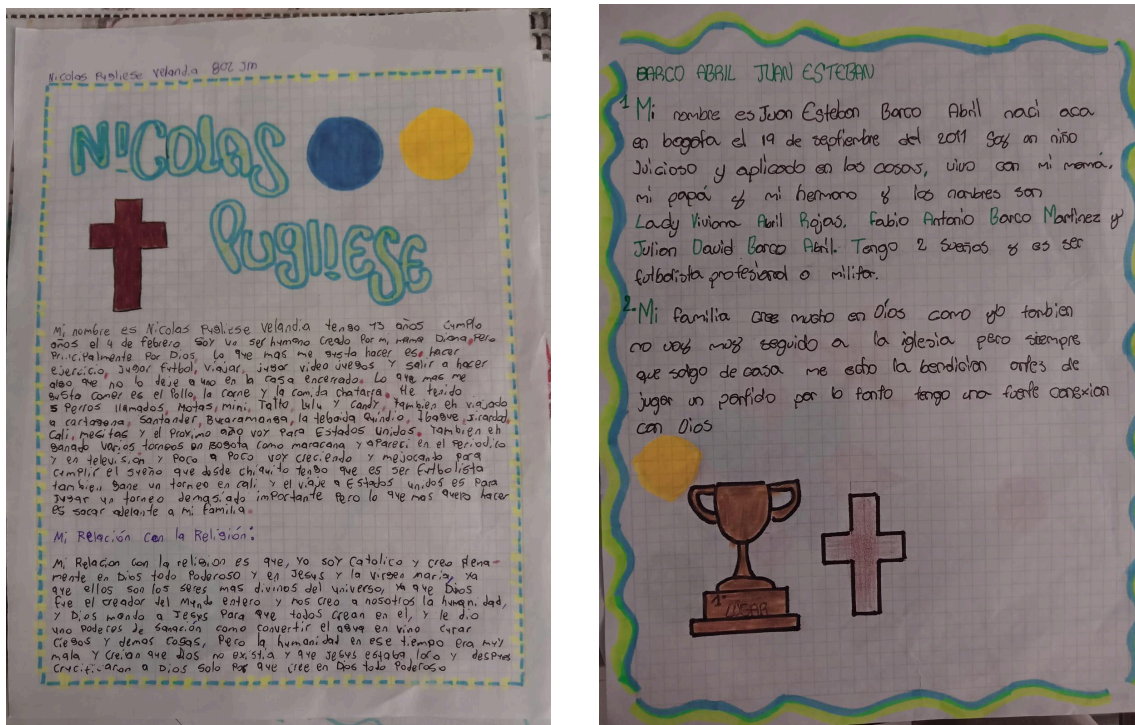 Nicolas Pugliese Velandia 802 Jm
NiCOLAS
PUGliESE
Mi nombre es Nicolas Pugliese Velandia tengo 13 años cumplo
años el 4 de febrero soy un ser humano creado por mi mama Diana, pero
principalmente por Dios, Lo que mas me gusta hacer es, hacer
ejercicio, jugar futbol, viajar, jugar video juegos y salir a hacer
algo que no lo deje a uno en la casa encerrado. Lo que mas me
gusta comer es el Pollo, la carne y la comida chatarra. He tenido
5 perros llamados, Motas, mini, Talto, Lulu y Candy, Tambien eh viajado
a cartagena, Santander, Bucaramanga, la tebaida Quindio, Ibague, Jirardot,
Cali, mesitas y el proximo año voy para Estados Unidos. Tambien eh
ganado varios torneos en Bogota como maracana y apareci en el periodico
y en televisión y poco a poco voy creciendo y mejorando para
cumplir el sueño que desde chiquito tengo que es ser futbolista
tambien gane un torneo en cali y el viaje a Estados unidos es para
jugar un torneo demasiado importante pero lo que mas quero hacer
es sacar adelante a mi familia.
Mi Relación con la Religión:
Mi Relacion con la religion es que, yo soy Catolico y creo plena-
mente en Dios todo Poderoso y en Jesus y la virgen maria, ya
que ellos son los seres mas divinos del universo, ya que Dios
fue el creador del mundo entero y nos creo a nosotros la humanidad,
y Dios mando a Jesus para que todos crean en el, y le dio
uno poderes de sanación como convertir el agua en vino curar
ciegos y demas cosas, pero la humanidad en ese tiempo era muy
mala y creian que Dios no existia y que Jesus estaba loco y despues
crucificaron a Dios solo por que cree en Dios todo Poderoso
BARCO ABRIL JUAN ESTEBAN
1 Mi nombre es Juan Esteban Barco Abril naci aca
en bogota el 19 de septiembre del 2011 Soy un niño
Juicioso y aplicado en las cosas, vivo con mi mamá,
mi papá y mi hermano y los nombres son
Lady Viviana Abril Rojas, Fabio Antonio Barco Martinez y
Julian David Barco Abril. Tengo 2 sueños y es ser
futbolista profesional o militar.
2. Mi familia cree mucho en Dios como yo tambien
no voy muy seguido a la iglesia pero siempre
que salgo de casa me echo la bendicion antes de
jugar un partido por lo tanto tengo una fuerte conexion
con Dios
1° LUGAR